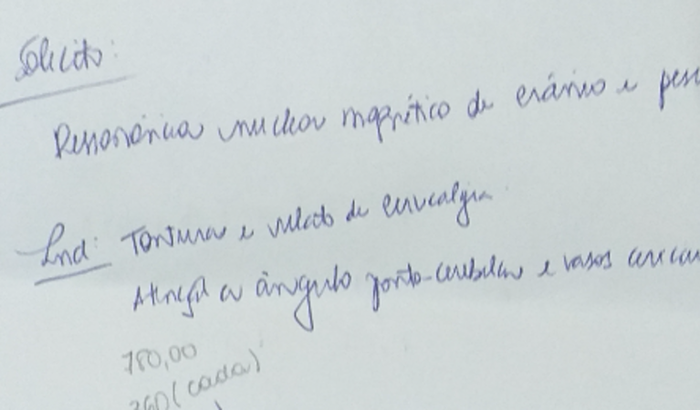 Solicito:
Ressonância nuclear magnética de crânio e pesc
Ind: Tontura e relato de cervicalgia
Atenção a ângulo ponto-cerebelar e vasos cervica
780,00
360 (cada)